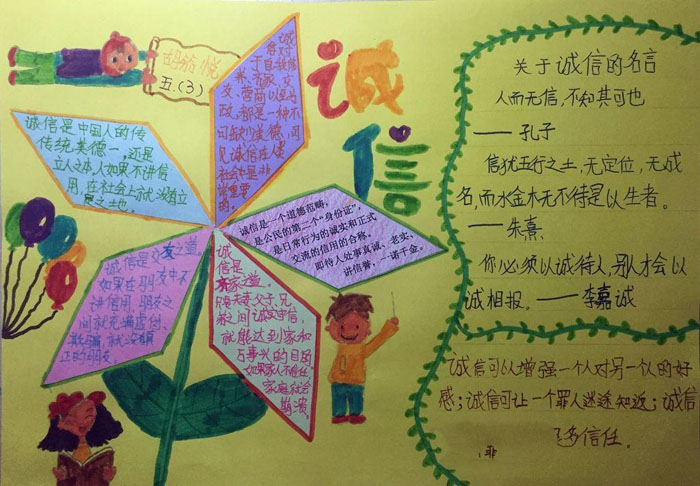 胡皓悦
五.(3)
诚信
诚
信对
于自我修
养、齐家、交
友、营商以至为
政,都是一种不
可缺少的美德,可
见诚信在人类
社会中是非
常重要
的。
诚信是中国人的传
传统美德一,还是
立人之本,人如果不讲信
用,在社会上就没有立
足之地。
诚信是一个道德范畴,
是公民的第二个“身份证”,
是日常行为的诚实和正式
交流的信用的合称。
即待人处事真诚、老实、
讲信誉,一诺千金。
诚信是交友之道。
如果在朋友中不
讲信用,朋友之
间就充满虚伪、
欺骗,就没有真
正的朋友
诚
信是
齐家之道。
只要夫妻、父子、兄
弟之间诚实守信,
就能达到家和
万事兴的目的
如果家人不信任,
家庭就会
崩溃。
关于诚信的名言
人而无信,不知其可也
——孔子
信犹五行之土,无定位,无成
名,而水金木无不待是以生者。
——朱熹
你必须以诚待人,别人才会以
诚相报。——李嘉诚
诚信可以增强一个人对另一个人的好
感;诚信可让一个罪人迷途知返;诚信
了多信任.